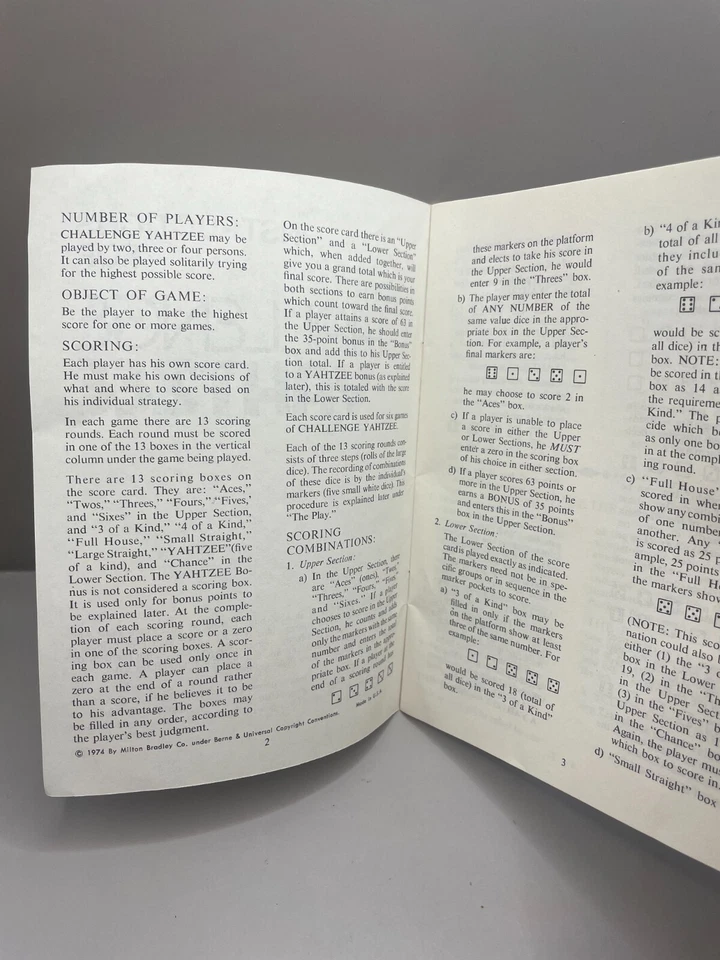 NUMBER OF PLAYERS:
CHALLENGE YAHTZEE may be
played by two, three or four persons.
It can also be played solitarily trying
for the highest possible score.
OBJECT OF GAME:
Be the player to make the highest
score for one or more games.
SCORING:
Each player has his own score card.
He must make his own decisions of
what and where to score based on
his individual strategy.
In each game there are 13 scoring
rounds. Each round must be scored
in one of the 13 boxes in the vertical
column under the game being played.
There are 13 scoring boxes on
the score card. They are: "Aces,"
"Twos," "Threes," "Fours," "Fives,"
and "Sixes" in the Upper Section,
and "3 of a Kind," "4 of a Kind,"
"Full House," "Small Straight,"
"Large Straight," "YAHTZEE"(five
of a kind), and "Chance" in the
Lower Section. The YAHTZEE Bo-
nus is not considered a scoring box.
It is used only for bonus points to
be explained later. At the comple-
tion of each scoring round, each
player must place a score or a zero
in one of the scoring boxes. A scor-
ing box can be used only once in
each game. A player can place a
zero at the end of a round rather
than a score, if he believes it to be
to his advantage. The boxes may
be filled in any order, according to
the player's best judgment.
© 1974 By Milton Bradley Co. under Berne & Universal Copyright Conventions.
Made in U.S.A.
2
On the score card there is an "Upper
Section" and a "Lower Section"
which, when added together, will
give you a grand total which is your
final score. There are possibilities in
both sections to earn bonus points
which count toward the final score.
If a player attains a score of 63 in
the Upper Section, he should enter
the 35-point bonus in the "Bonus"
box and add this to his Upper Sec-
tion total. If a player is entitled
to a YAHTZEE bonus (as explained
later), this is totaled with the score
in the Lower Section.
Each score card is used for six games
of CHALLENGE YAHTZEE.
Each of the 13 scoring rounds con-
sists of three steps (rolls of the large
dice). The recording of combinations
of these dice is by the individual's
markers (five small white dice). This
procedure is explained later under
"The Play."
SCORING
COMBINATIONS:
1. Upper Section:
a) In the Upper Section, there
are "Aces" (ones), "Twos,"
"Threes," "Fours," "Fives"
and "Sixes." If a player
chooses to score in the Upper
Section, he counts and adds
only the markers with the same
number and enters the total
of the markers in the appro-
priate box. If a player at the
end of a scoring round has
these markers on the platform
and elects to take his score in
the Upper Section, he would
enter 9 in the "Threes" box.
b) The player may enter the total
of ANY NUMBER of the
same value dice in the appro-
priate box in the Upper Sec-
tion. For example, a player's
final markers are:
he may choose to score 2 in
the "Aces" box.
c) If a player is unable to place
a score in either the Upper
or Lower Sections, he MUST
enter a zero in the scoring box
of his choice in either section.
d) If a player scores 63 points or
more in the Upper Section, he
earns a BONUS OF 35 points
and enters this in the "Bonus"
box in the Upper Section.
2. Lower Section:
The Lower Section of the score
card is played exactly as indicated.
The markers need not be in spe-
cific groups or in sequence in the
marker pockets to score.
a) "3 of a Kind" box may be
filled in only if the markers
on the platform show at least
three of the same number. For
example:
would be scored 18 (total of
all dice) in the "3 of a Kind"
box.
3
b) "4 of a Ki
total of all
they inclu
of the sam
example:
would be sc
all dice) in th
box. NOTE:
be scored in t
box as 14 a
the requireme
Kind." The p
cide which b
as only one bo
in at the compl
ing round.
c) "Full House"
scored in whe
show any combin
of one number
another. Any
is scored as 25 p
ample, 25 points
in the "Full H
the markers show
(NOTE: This sco
nation could also b
either (1) the "3 o
box in the Lower
19, (2) in the "Th
in the Upper Sect
(3) in the "Fives" b
Upper Section as 1
in the "Chance" bo
Again, the player mu
which box to score in.
d) "Small Straight" box